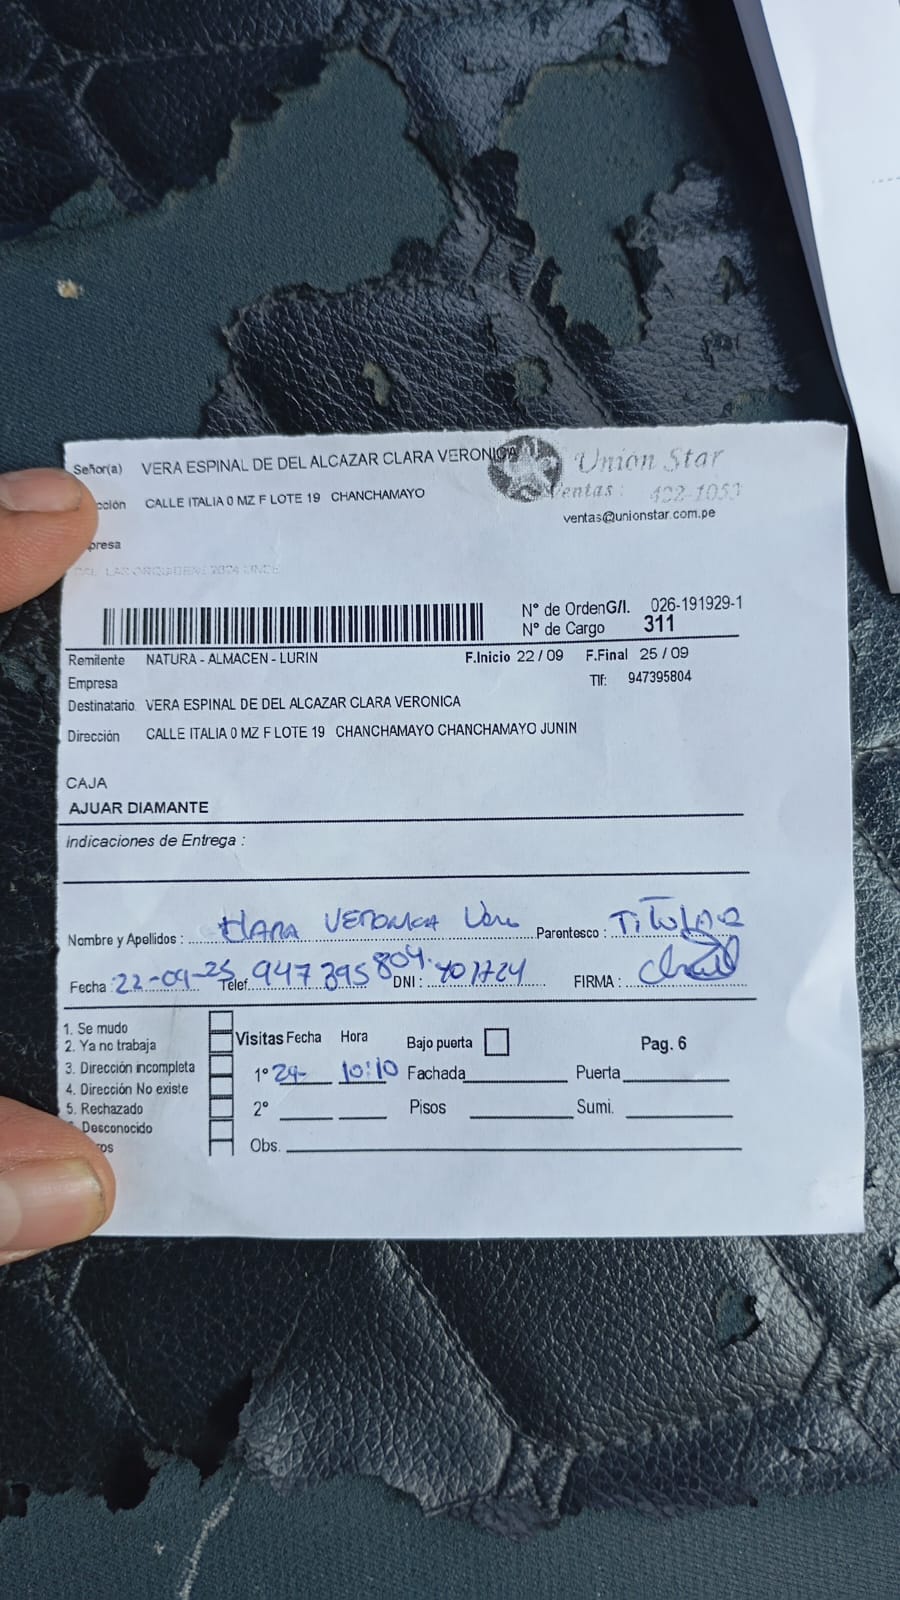 Señor(a) VERA ESPINAL DE DEL ALCAZAR CLARA VERONICA
Unión Star
cción CALLE ITALIA 0 MZ F LOTE 19 CHANCHAMAYO
Ventas : 422-1053
ventas@unionstar.com.pe
presa
N° de OrdenG/I. 026-191929-1
N° de Cargo 311
Remitente NATURA - ALMACEN - LURIN F.Inicio 22 / 09 F.Final 25 / 09
Empresa Tlf: 947395804
Destinatario VERA ESPINAL DE DEL ALCAZAR CLARA VERONICA
Dirección CALLE ITALIA 0 MZ F LOTE 19 CHANCHAMAYO CHANCHAMAYO JUNIN
CAJA
AJUAR DIAMANTE
indicaciones de Entrega :
Nombre y Apellidos : CLARA VERONICA Vera Parentesco : Titular
Fecha : 22-09-25 Telef. 947395804 DNI : FIRMA :
1. Se mudo
2. Ya no trabaja
3. Dirección incompleta
4. Dirección No existe
5. Rechazado
Desconocido
ros
Visitas Fecha Hora Bajo puerta Pag. 6
1° 24- 10:10 Fachada Puerta
2° Pisos Sumi.
Obs.